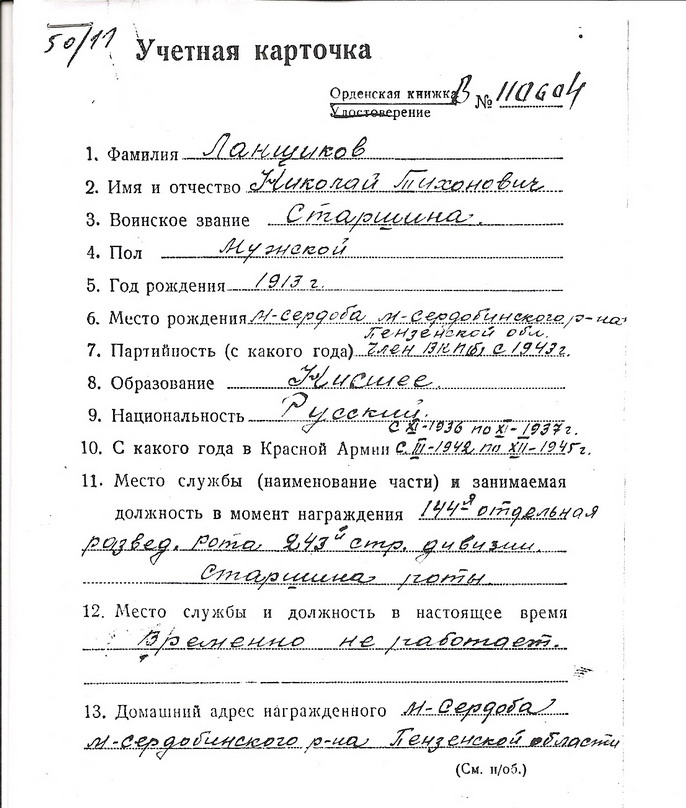 50/11
Учетная карточка
Орденская книжка В № 110604
Удостоверение
1. Фамилия Ланщиков
2. Имя и отчество Николай Тихонович
3. Воинское звание Старшина.
4. Пол Мужской
5. Год рождения 1913 г.
6. Место рождения М-Сердоба М-Сердобинского р-на
Пензенской обл.
7. Партийность (с какого года) Член ВКП(б) с 1943 г.
8. Образование Низшее.
9. Национальность Русский.
с XI-1936 по XI-1937 г.
10. С какого года в Красной Армии с III-1942 по XII-1945 г.
11. Место службы (наименование части) и занимаемая
должность в момент награждения 144-я отдельная
развед. рота 243й стр. дивизии.
Старшина роты
12. Место службы и должность в настоящее время
Временно не работает.
13. Домашний адрес награжденного М-Сердоба
М-Сердобинского р-на Пензенской области
(См. н/об.)